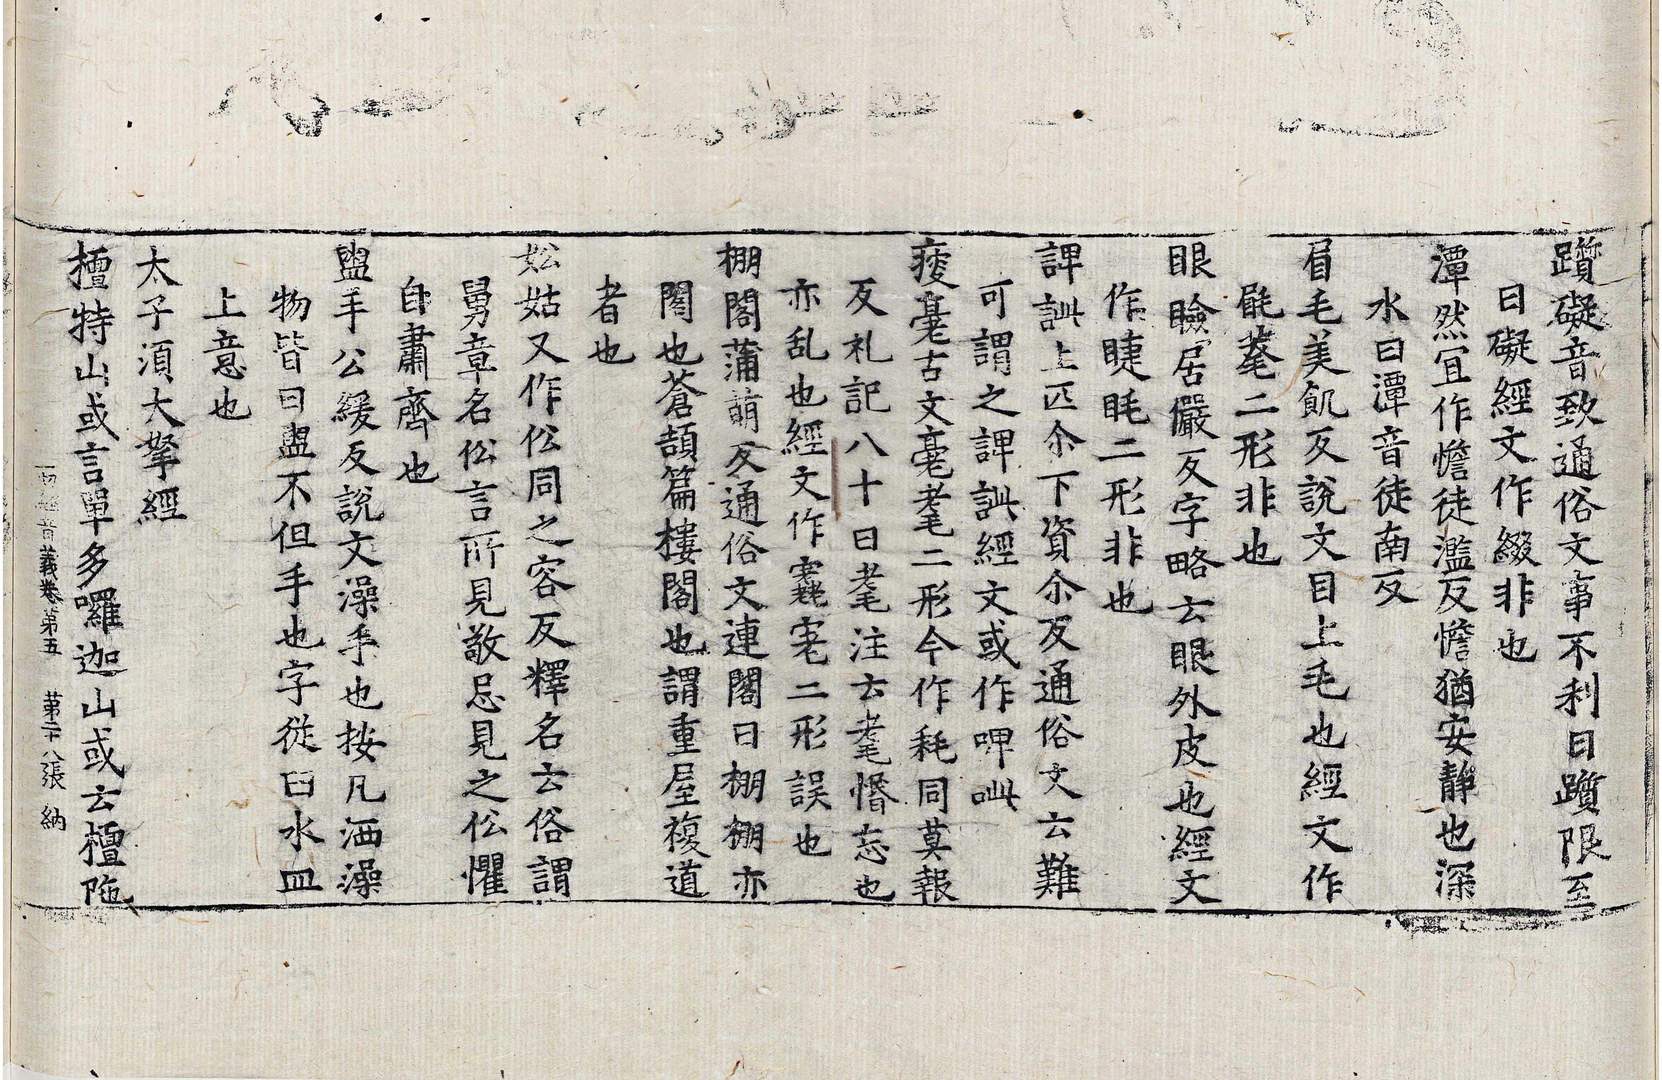 躓礙音致通俗文事不利曰躓限至
曰礙經文作綴非也
潭然冝作憺徒濫反憺猶安靜也深
水曰潭音徒南反
眉毛美飢反說文目上毛也經文作
二形非也
眼瞼居儼反字略云眼外皮也經文
作睫毦二形非也
諀訿上匹尒下資尒反通俗文云難
可謂之諀訿經文或作呷呲
痠耄古文耄耄二形今作秏同莫報
反礼記八十曰耄注云耄惛忘也
亦乱也經文作二形誤也
棚閣蒲萌反通俗文連閣曰棚棚亦
閣也蒼頡篇樓閣也謂重屋複道
者也
妐姑又作伀同之容反釋名云俗謂
舅章名伀言所見敬忌見之伀懼
自肅齊也
盥手公緩反說文澡手也按凡洒澡
物皆曰盥不但手也字從臼水皿
上意也
太子湏大拏經
檀特山或言單多囉迦山或云檀陁
一切經音義卷第五 第二十八張 納